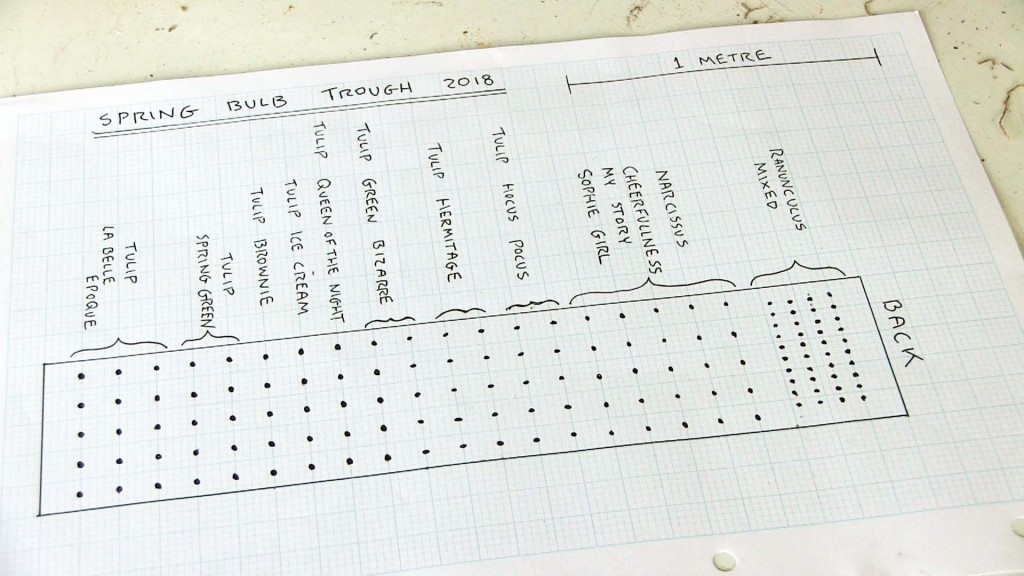 SPRING BULB TROUGH 2018
1 METRE
TULIP
LA BELLE
EPOQUE
TULIP
SPRING GREEN
TULIP BROWNIE
TULIP ICE CREAM
TULIP QUEEN OF THE NIGHT
TULIP GREEN BIZARRE
TULIP HERMITAGE
TULIP HOCUS POCUS
NARCISSUS
CHEERFULLNESS
MY STORY
SOPHIE GIRL
RANUNCULUS
MIXED
BACK